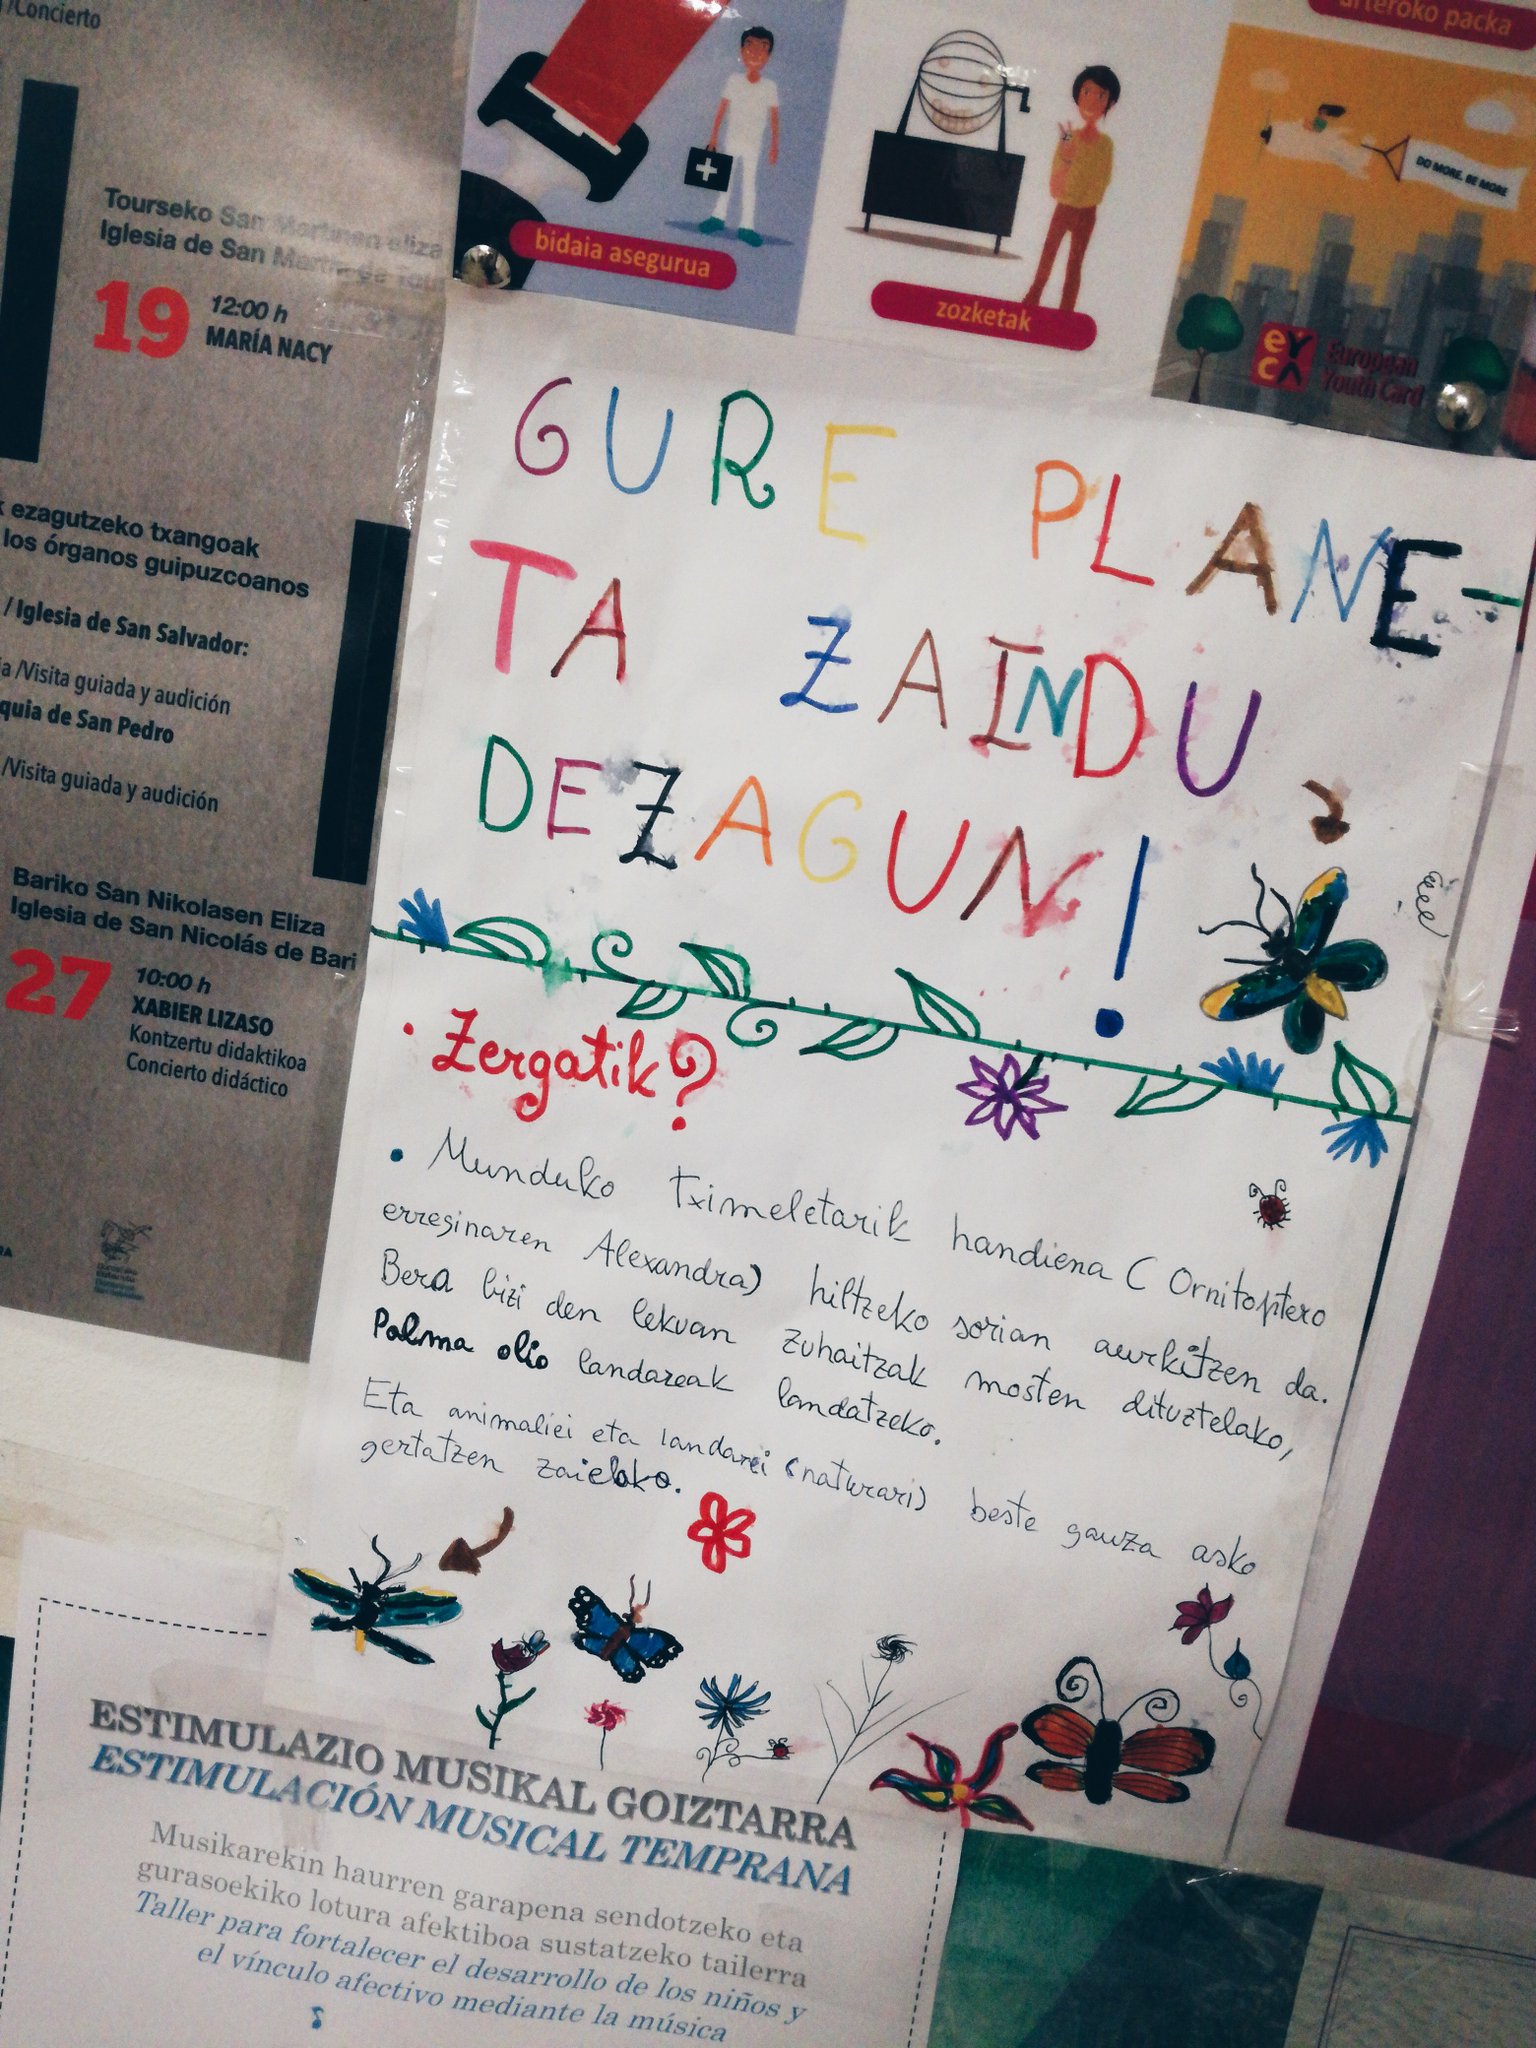 /Concierto
Tourseko San Martinen eliza
Iglesia de San Martín de Tour
19
12:00 h
MARÍA NACY
ezagutzeko txangoak
los órganos guipuzcoanos
/ Iglesia de San Salvador:
/Visita guiada y audición
quia de San Pedro
/Visita guiada y audición
Bariko San Nikolasen Eliza
Iglesia de San Nicolás de Bari
27
10:00 h
XABIER LIZASO
Kontzertu didaktikoa
Concierto didáctico
bidaia asegurua
zozketak
urteroko packa
DO MORE, BE MORE
eyca
European
Youth Card
GURE PLANE-
TA ZAINDU
DEZAGUN!
• Zergatik?
• Munduko tximeletarik handiena (Ornitoptero
erreginaren Alexandra) hiltzeko sorian aurkitzen da.
Bera bizi den lekuan zuhaitzak mosten dituztelako,
Palma olio landareak landatzeko.
Eta animaliei eta landarei (naturari) beste gauza asko
gertatzen zaielako.
ESTIMULAZIO MUSIKAL GOIZTARRA
ESTIMULACIÓN MUSICAL TEMPRANA
Musikarekin haurren garapena sendotzeko eta
gurasoekiko lotura afektiboa sustatzeko tailerra
Taller para fortalecer el desarrollo de los niños y
el vínculo afectivo mediante la música